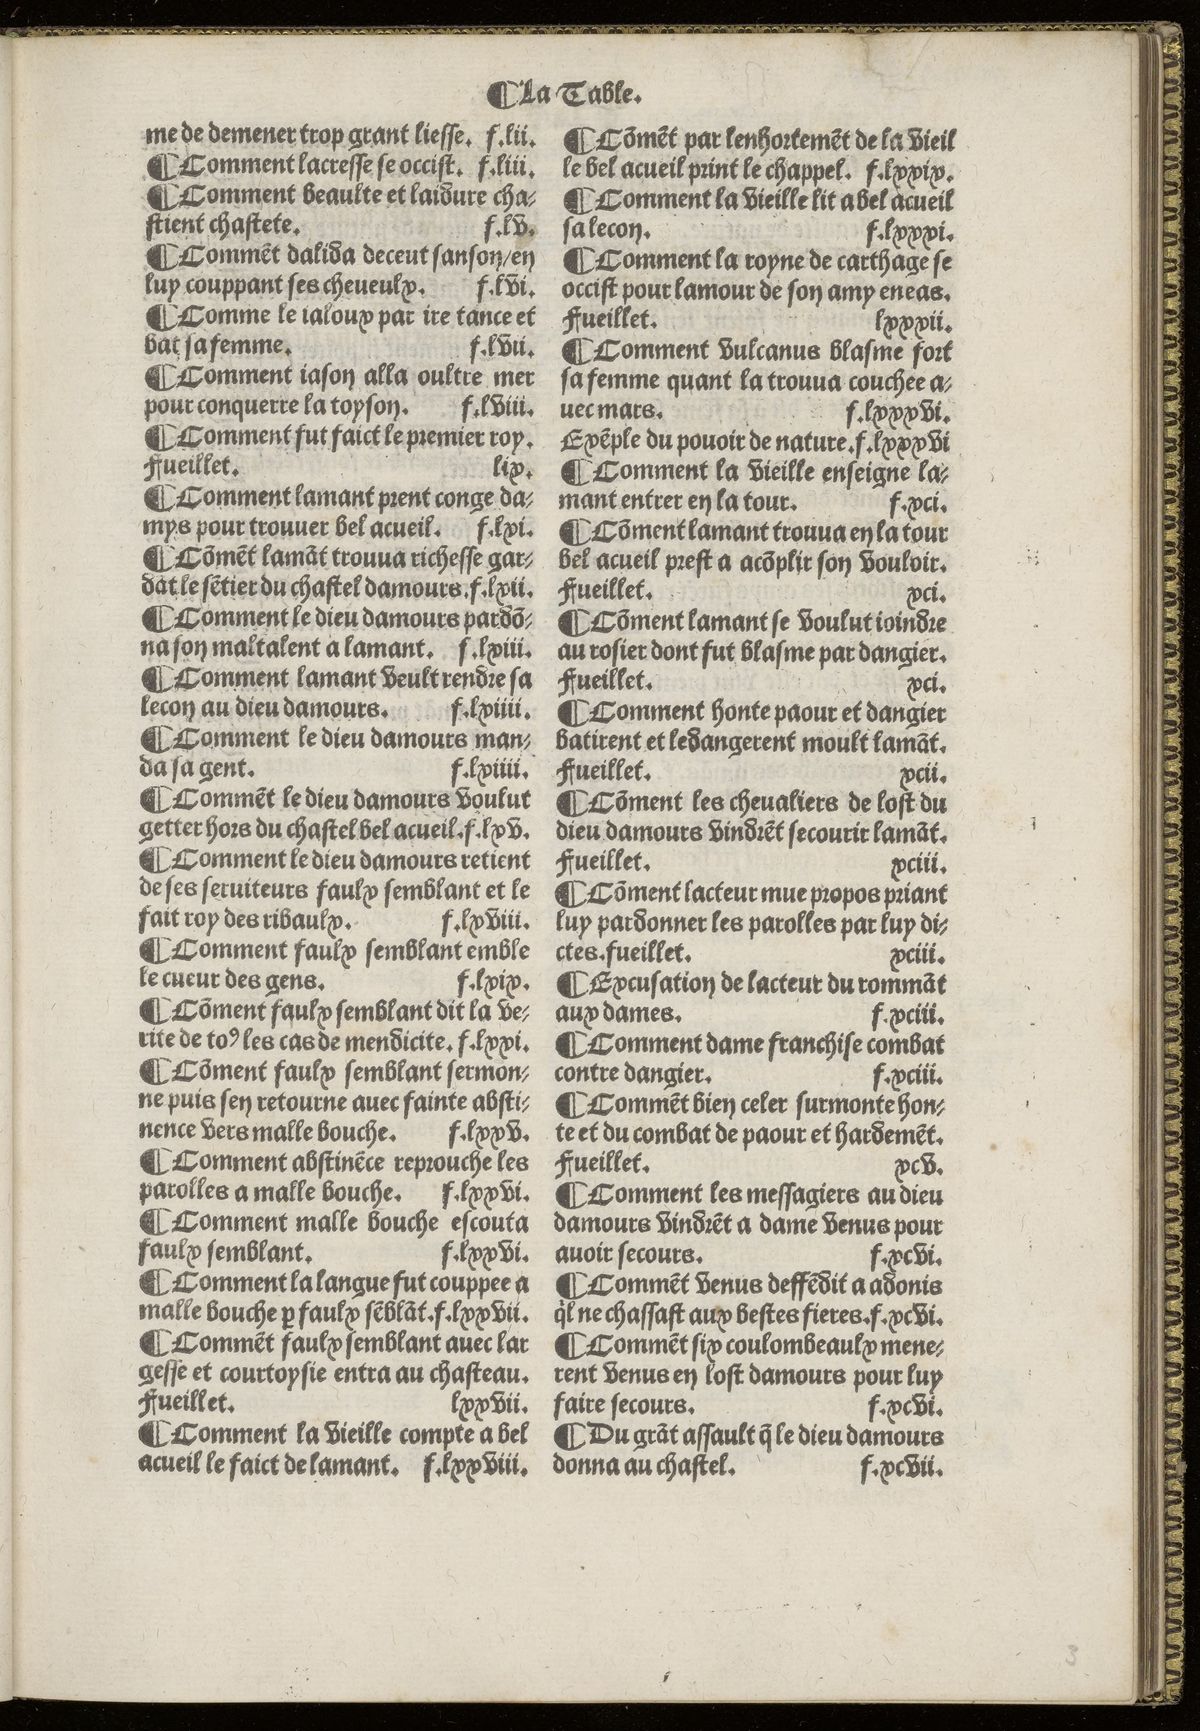 ¶La Table.
me de demener trop grant liesse. f.lii.
¶Comment lacresse se occist. f.liii.
¶Comment beaulte et laidure cha-
stient chastete. f.lv.
¶Commēt dalida deceut sanson/en
luy couppant ses cheueulx. f.lvi.
¶Comme le ialoux par ire tance et
bat sa femme. f.lvii.
¶Comment iason alla oultre mer
pour conquerre la toyson. f.lviii.
¶Comment fut faict le premier roy.
Fueillet. lix.
¶Comment lamant prent conge da-
mys pour trouuer bel acueil. f.lxi.
¶Cōmēt lamāt trouua richesse gar-
dāt le sētier du chastel damours.f.lxii.
¶Comment le dieu damours pardō-
na son maltalent a lamant. f.lxiii.
¶Comment lamant veult rendre sa
lecon au dieu damours. f.lxiiii.
¶Comment le dieu damours man-
da sa gent. f.lxiiii.
¶Commēt le dieu damours voulut
getter hors du chastel bel acueil.f.lxv.
¶Comment le dieu damours retient
de ses seruiteurs faulx semblant et le
fait roy des ribaulx. f.lxviii.
¶Comment faulx semblant emble
le cueur des gens. f.lxix.
¶Cōment faulx semblant dit la ve-
rite de toꝰ les cas de mendicite. f.lxxi.
¶Cōment faulx semblant sermon-
ne puis sen retourne auec fainte absti-
nence vers malle bouche. f.lxxv.
¶Comment abstinēce reprouche les
parolles a malle bouche. f.lxxvi.
¶Comment malle bouche escouta
faulx semblant. f.lxxvi.
¶Comment la langue fut couppee a
malle bouche ꝑ faulx sēblāt.f.lxxvii.
¶Commēt faulx semblant auec lar
gesse et courtoysie entra au chasteau.
Fueillet. lxxvii.
¶Comment la vieille compte a bel
acueil le faict de lamant. f.lxxviii.
¶Cōmēt par lenhortemēt de la vieil
le bel acueil print le chappel. f.lxxix.
¶Comment la vieille lit a bel acueil
sa lecon. f.lxxxi.
¶Comment la royne de carthage se
occist pour lamour de son amy eneas.
Fueillet. lxxxii.
¶Comment vulcanus blasme fort
sa femme quant la trouua couchee a-
uec mars. f.lxxxvi.
Exēple du pouoir de nature.f.lxxxvi
¶Comment la vieille enseigne la-
mant entrer en la tour. f.xci.
¶Cōment lamant trouua en la tour
bel acueil prest a acōplir son vouloir.
Fueillet. xci.
¶Cōment lamant se voulut ioindre
au rosier dont fut blasme par dangier.
Fueillet. xci.
¶Comment honte paour et dangier
batirent et ledangerent moult lamāt.
Fueillet. xcii.
¶Cōment les cheualiers de lost du
dieu damours vindrēt secourir lamāt.
Fueillet. xciii.
¶Cōment lacteur mue propos priant
luy pardonner les parolles par luy di-
ctes.fueillet. xciii.
¶Excusation de lacteur du rommāt
aux dames. f.xciii.
¶Comment dame franchise combat
contre dangier. f.xciii.
¶Commēt bien celer surmonte hon-
te et du combat de paour et hardemēt.
Fueillet. xcv.
¶Comment les messagiers au dieu
damours vindrēt a dame venus pour
auoir secours. f.xcvi.
¶Commēt venus deffēdit a adonis
q̇l ne chassast aux bestes fieres.f.xcvi.
¶Commēt six coulombeaulx mene-
rent venus en lost damours pour luy
faire secours. f.xcvi.
¶Du grāt assault q̄ le dieu damours
donna au chastel. f.xcvii.
3